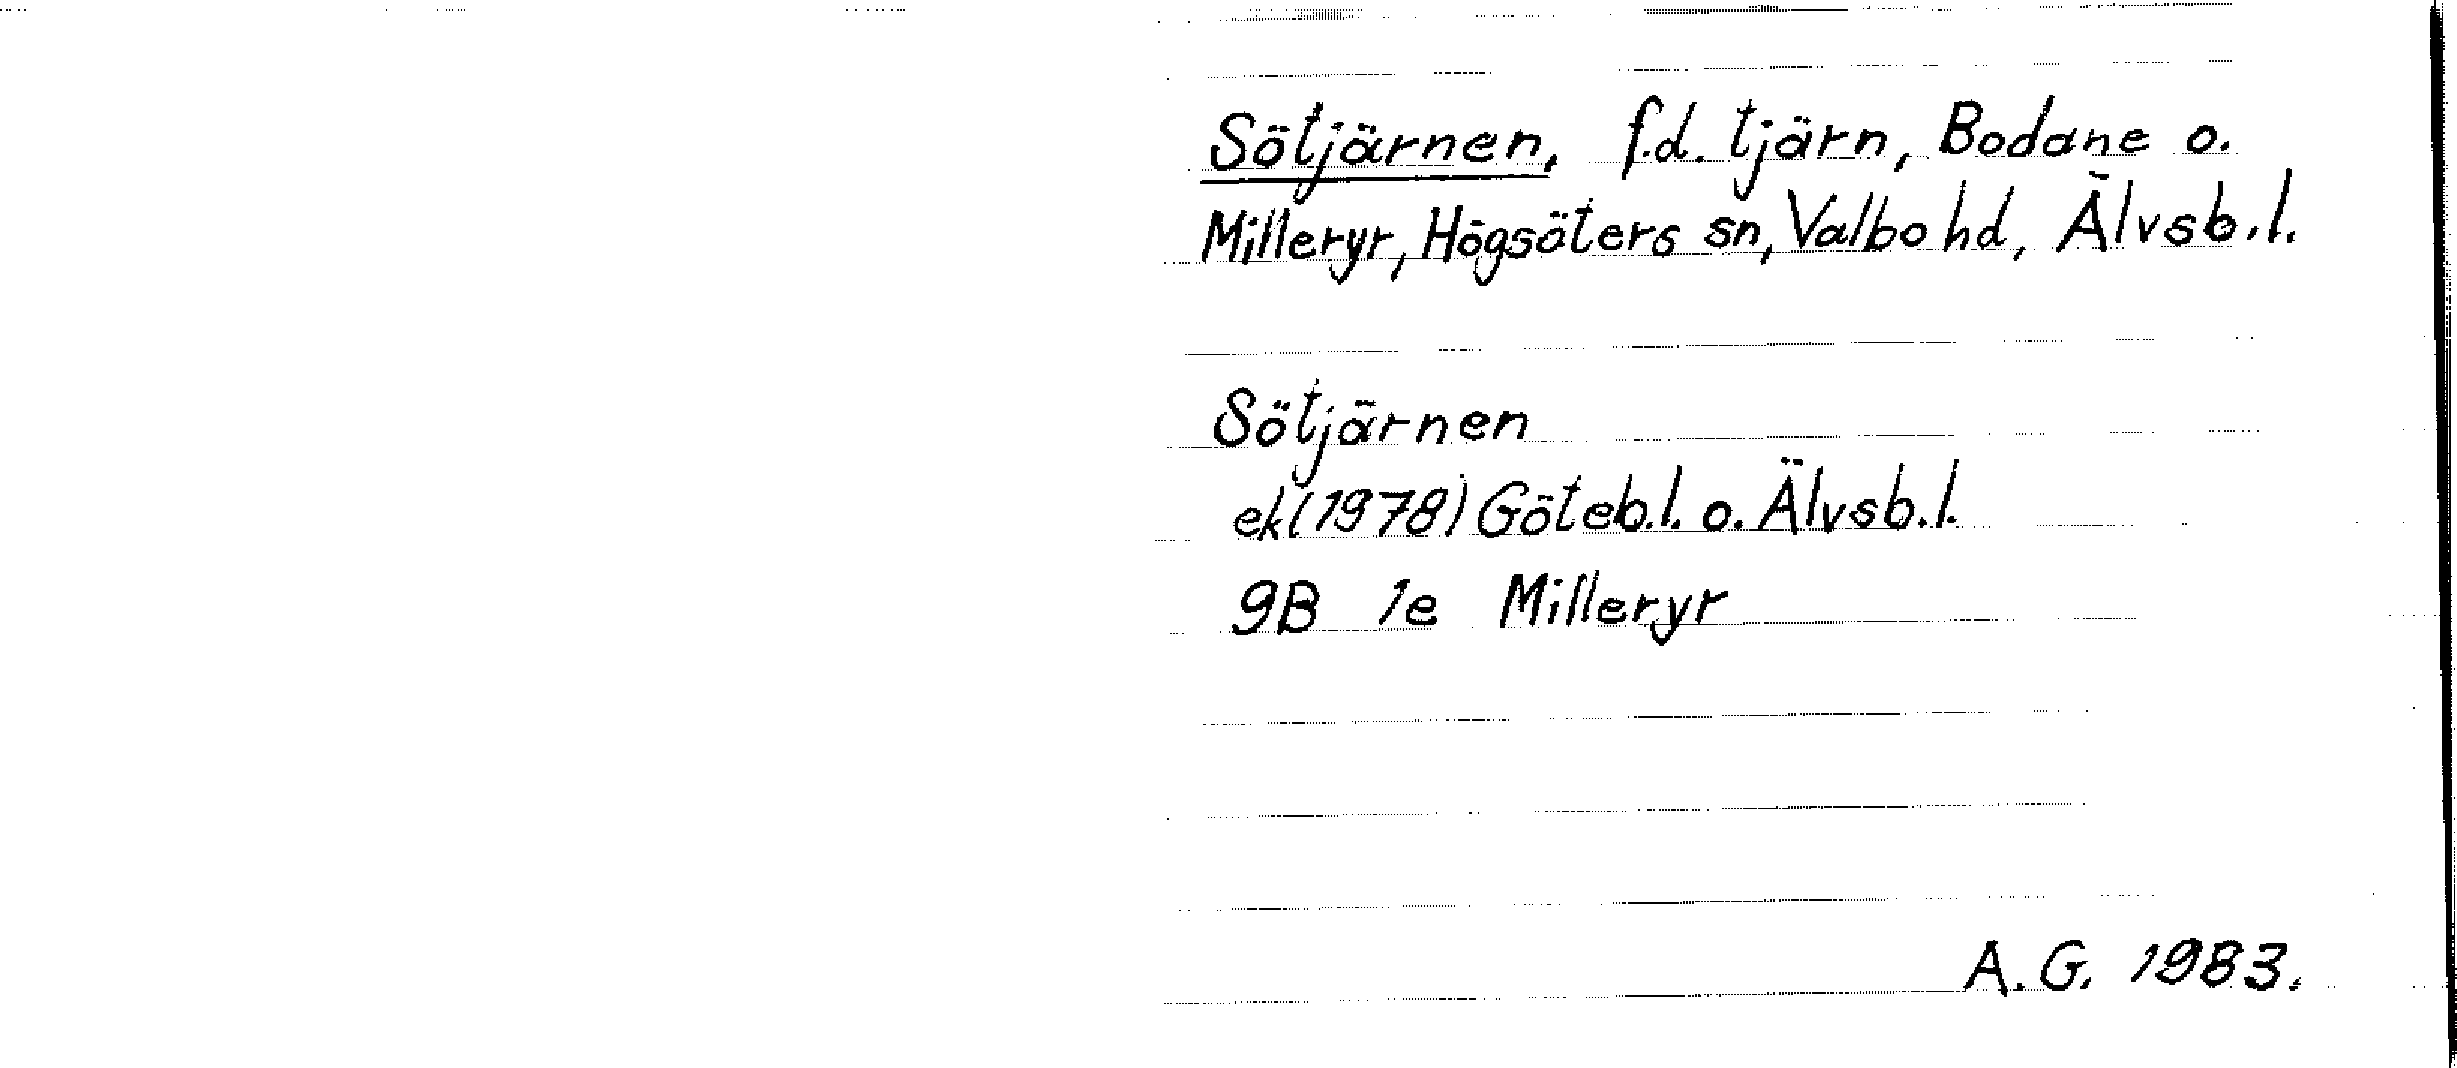 Sötjärnen, f.d. tjärn, Bodane o.
Milleryr, Högsäters sn, Valbo hd, Älvsb.l.
Sötjärnen
ek (1978) Göteb.l. o. Älvsb.l.
9B 1e Milleryr
A.G. 1983.